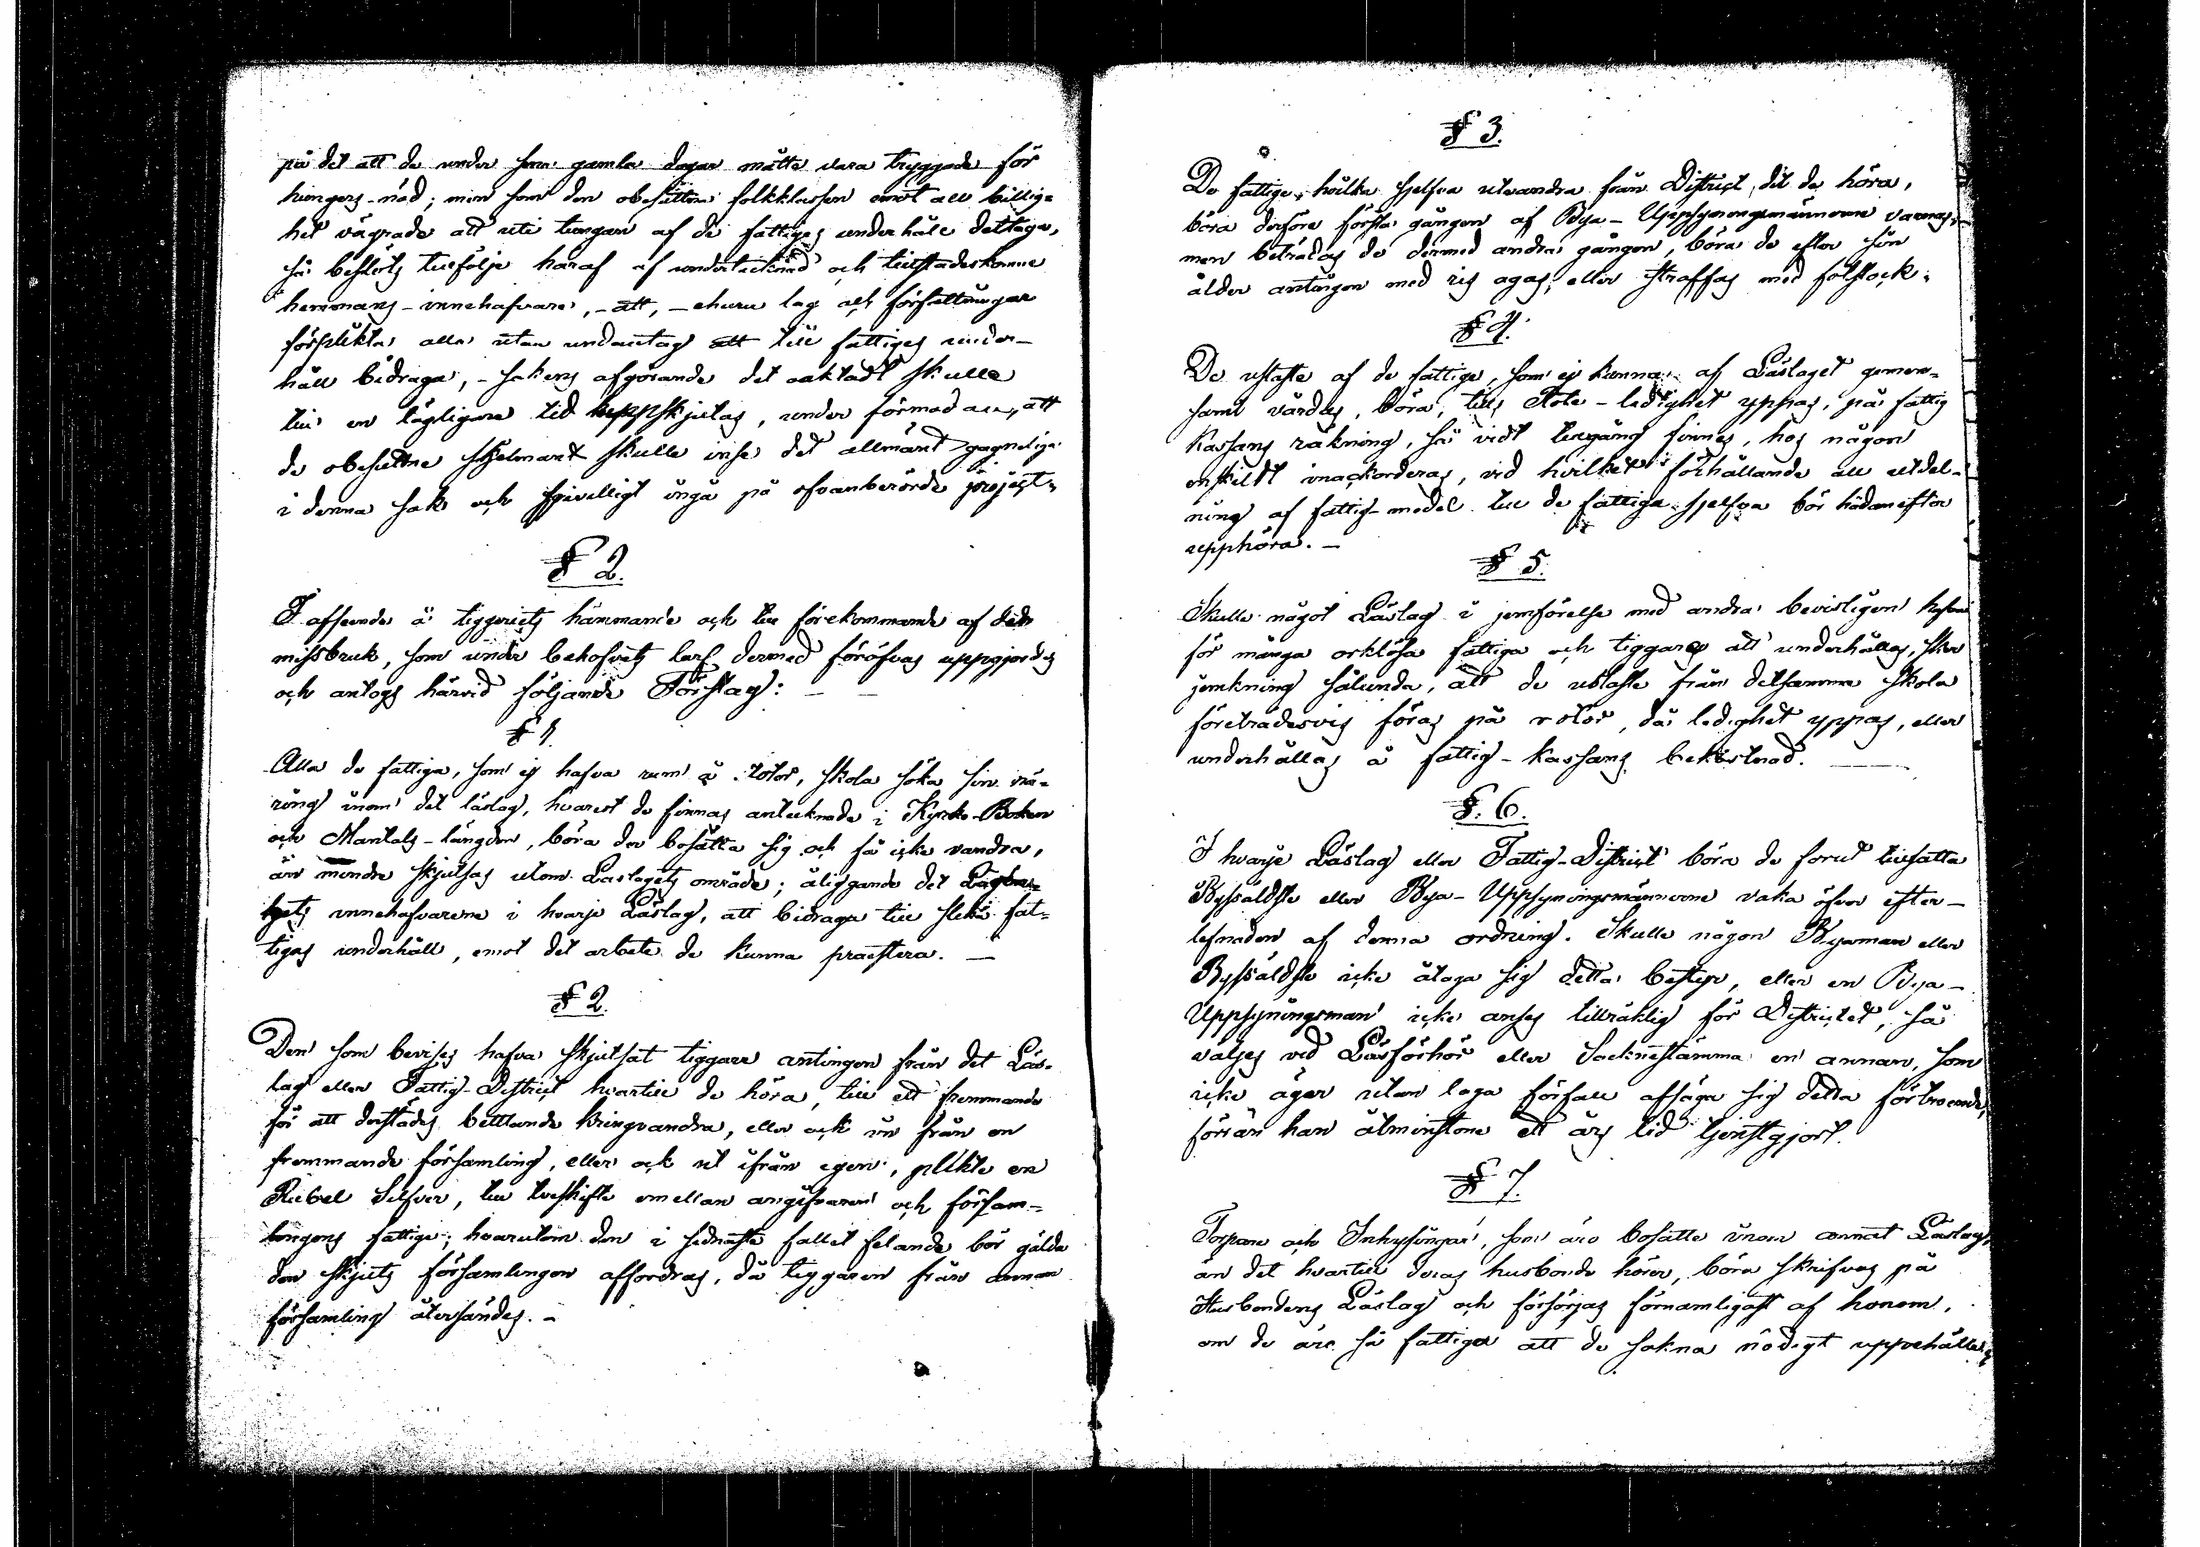 på det att de under sina gamla dagar måtte vara tryggade för
hungers-nöd; men som den obesuttna folkklassen emot all billig-
het vägrade att uti tungan af de fattiges underhåll deltaga,
så beslöts tillfölje häraf af undertecknad och tillstädeskomne
hemmans-innehafvare, - att, - ehuru lag och författningar
förplikta alla utan undantag att till fattiges under-
håll bidraga, - sakens afgörande det oaktadt skulle
till en lägligare tid uppskjutas, under förmodan, att
de obesuttne sjelfmant skulle inse det allmänt gagneliga
i denna sak och frivilligt ingå på ofvanberörde project.
§ 2.
I afseende å tiggeriets hämmande och till förekommande af det
missbruk, som under behofvets larf dermed föröfvas uppgjordes
och antogs härvid följande Förslag: -
§ 1.
Alla de fattiga, som ej hafva rum å rotor, skola söka sin nä-
ring inom det läslag, hvarest de finnas antecknade i Kyrko-Boken
och Mantals-längden, böra der bosätta sig och få icke vandra,
än mindre skjutsas utom Läslagets område; åliggande det
innehafvarene i hvarje Läslag, att bidraga till slika fat-
tigas underhåll, emot det arbete de kunna praestera. -
§ 2.
Den som bevises hafva skjutsat tiggare antingen från det Läs-
lag eller Fattig-District hvartill de höra, till ett fremmande
för att derstädes bettlande kringvandra, eller ock in från en
fremmande församling, eller ock ut ifrån egen, plikte en
Rubel Silfver, till tveskifte emellan angifvaren och försam-
lingens fattige; hvarutom den i sednaste fallet felande bör gälda
den skjuts församlingen affordras, då tiggaren från annan
församling återsändes. -
§ 3.
De fattige, hvilka sjelfva utvandra från District, dit de höra,
böra derföre första gången af Bya-Uppsyningsmännerne varnas,
men beträdas de dermed andra gången, böra de efter sin
ålder antingen med ris agas, eller straffas med fotstock.
§ 4.
De uslaste af de fattige, som ej kunna af Läslaget gemen-
samt vårdas, böra, tills Rote-ledighet yppas, på fattig
Kassans räkning, så vidt tillgång finnes, hos någon
enskildt inackorderas, vid hvilket förhållande all utdel-
ning af fattig-medel till de fattiga sjelfva bör hädanefter
upphöra. -
§ 5.
Skulle något Läslag i jemförelse med andra bevisligen hafva
för många orklösa fattiga och tiggare att underhållas, sker
jemkning sålunda, att de uslaste från detsamma skola
företrädesvis föras på rotor, då ledighet yppas, eller
underhållas å fattig-kassans bekostnad.
§. 6.
I hvarje Läslag eller Fattig-District böra de förut tillsatta
Bysäldste eller Bya-Uppsyningsmännerne vaka öfver efter-
lefnaden af denna ordning. Skulle någon Byaman eller
Bysäldste icke åtaga sig detta bestyr, eller en Bya-
Uppsyningsman icke anses tillräklig för Districtet, så
väljes vid Läsförhör eller Sockenstämma en annan, som
icke äger utan laga förfall afsäga sig detta förtroende,
förrän han åtminstone ett års tid tjenstgjort.
§ 7.
Torpare och Inhysingar, som äro bosatte inom annat Läslag,
än det hvartill deras husbonde hörer, böra skrifvas på
Husbondens Läslag och försörjas förnämligast af honom,
om de äro så fattiga att de sakna nödigt uppehälle,